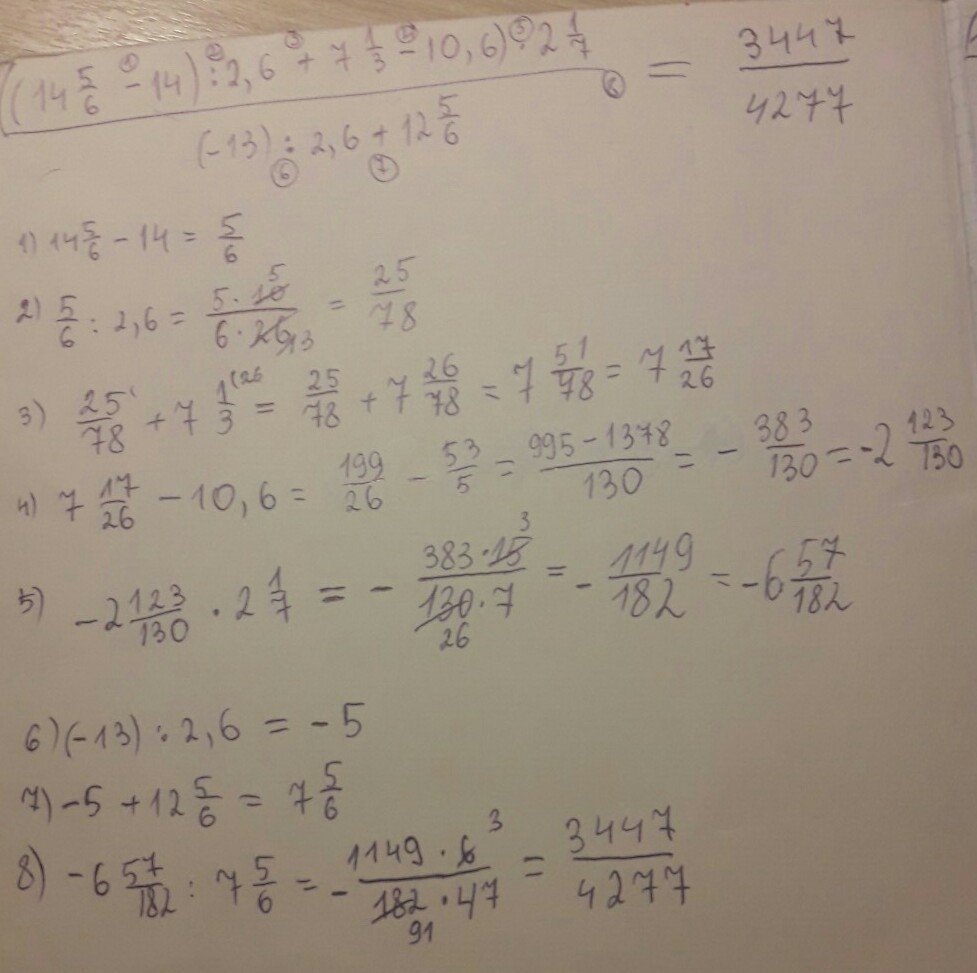 ((14 5/6 - 14) : 2,6 + 7 1/3 - 10,6) · 2 1/7 = 3447/4277
(-13) : 2,6 + 12 5/6
1) 14 5/6 - 14 = 5/6
2) 5/6 : 2,6 = 5·10 5/6·26 13 = 25/78
3) 25/78 + 7 1/3 (26 = 25/78 + 7 26/78 = 7 51/78 = 7 17/26
4) 7 17/26 - 10,6 = 199/26 - 53/5 = 995-1378/130 = - 383/130 = -2 123/130
5) -2 123/130 · 2 1/7 = - 383·15 3/130·7 26 = - 1149/182 = -6 57/182
6) (-13) : 2,6 = -5
7) -5 + 12 5/6 = 7 5/6
8) -6 57/182 : 7 5/6 = - 1149·6 3/182·47 91 = 3447/4277